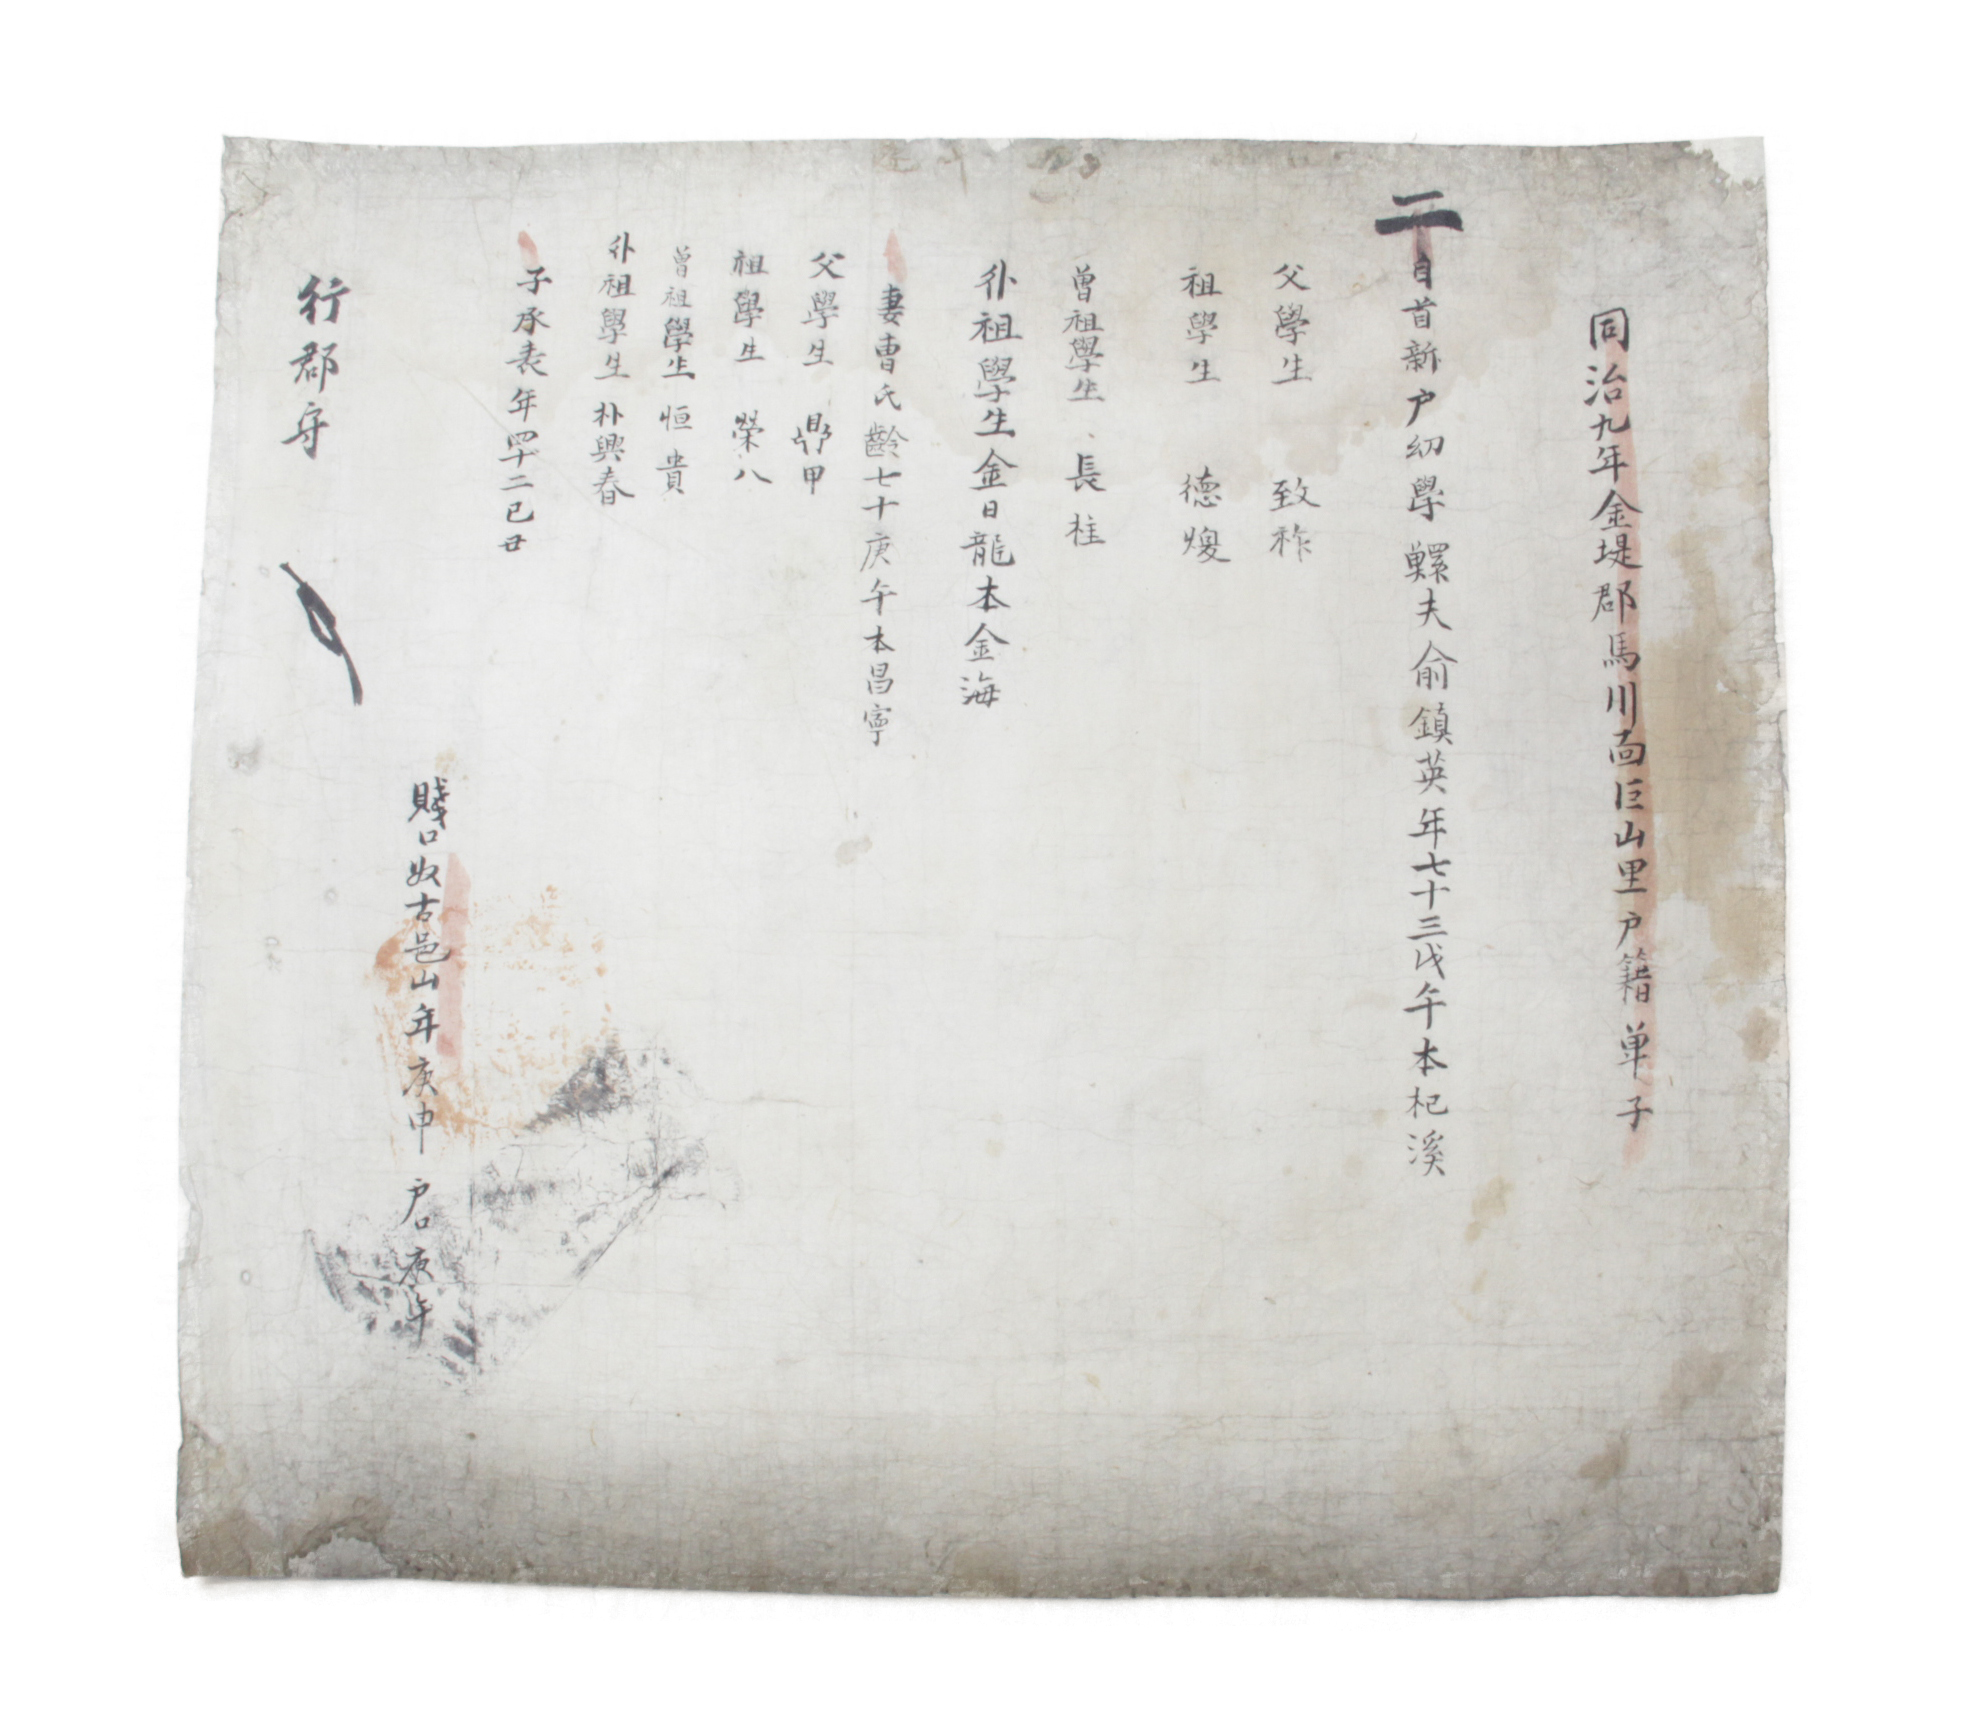 同治九年金堤郡馬川面巨山里戶籍单子
二自首新戶幼學鰥夫俞鎮英年七十三戊午本杞溪
父學生 致祚
祖學生 德煥
曾祖學生 長柱
外祖學生金日龍本金海
妻曺氏齡七十庚午本昌寧
父學生 甲
祖學生 榮八
曾祖學生 恒貴
外祖學生朴興春
子承表年四十二己丑
賤口奴古邑山年庚申 戶口庚午
行郡守